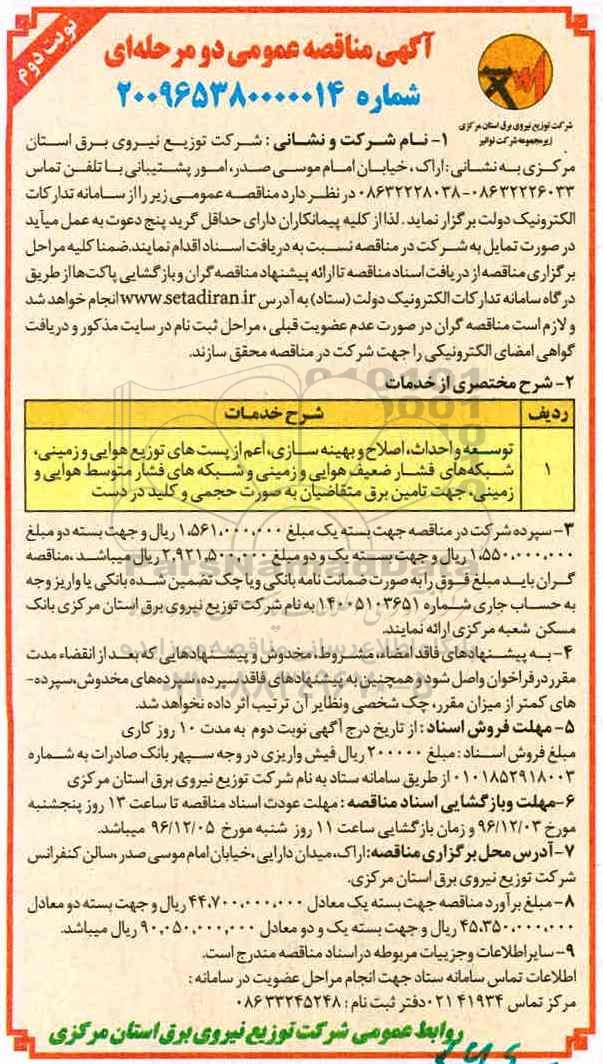 نوبت دوم
آگهی مناقصه عمومی دو مرحله‌ای
شماره ۲۰۰۹۶۵۳۸۰۰۰۰۰۱۴
شرکت توزیع نیروی برق استان مرکزی
زیرمجموعه شرکت توانیر
۱- نام شرکت و نشانی : شرکت توزیع نیروی برق استان
مرکزی به نشانی : اراک ، خیابان امام موسی صدر، امور پشتیبانی با تلفن تماس
۰۸۶۳۲۲۲۶۰۳۳-۰۸۶۳۲۲۲۸۰۳۸ در نظر دارد مناقصه عمومی زیر را از سامانه تدارکات
الکترونیک دولت برگزار نماید . لذا از کلیه پیمانکاران دارای حداقل گرید پنج دعوت به عمل میآید
در صورت تمایل به شرکت در مناقصه نسبت به دریافت اسناد اقدام نمایند.ضمنا کلیه مراحل
برگزاری مناقصه از دریافت اسناد مناقصه تا ارائه پیشنهاد مناقصه گران و بازگشایی پاکت‌ها از طریق
درگاه سامانه تدارکات الکترونیک دولت (ستاد) به آدرس www.setadiran.ir انجام خواهد شد
و لازم است مناقصه گران در صورت عدم عضویت قبلی ، مراحل ثبت نام در سایت مذکور و دریافت
گواهی امضای الکترونیکی را جهت شرکت در مناقصه محقق سازند.
۲- شرح مختصری از خدمات
ردیف شرح خدمات
توسعه و احداث، اصلاح و بهینه سازی، اعم از پست های توزیع هوایی و زمینی،
۱ شبکه‌های فشار ضعیف هوایی و زمینی و شبکه های فشار متوسط هوایی و
زمینی، جهت تامین برق متقاضیان به صورت حجمی و کلید در دست
۳- سپرده شرکت در مناقصه جهت بسته یک مبلغ ۱،۵۶۱،۰۰۰،۰۰۰ ریال و جهت بسته دو مبلغ
۱،۵۵۰،۰۰۰،۰۰۰ ریال و جهت بسته یک و دو مبلغ ۲،۹۲۱،۵۰۰،۰۰۰ ریال میباشد ،مناقصه
گران باید مبلغ فوق را به صورت ضمانت نامه بانکی و یا چک تضمین شده بانکی یا واریز وجه
به حساب جاری شماره ۱۴۰۰۵۱۰۳۶۵۱ به نام شرکت توزیع نیروی برق استان مرکزی بانک
مسکن شعبه مرکزی ارائه نمایند.
۴- به پیشنهادهای فاقد امضاء، مشروط، مخدوش و پیشنهادهایی که بعد از انقضاء مدت
مقرر در فراخوان واصل شود و همچنین به پیشنهادهای فاقد سپرده، سپرده‌های مخدوش، سپرده-
های کمتر از میزان مقرر، چک شخصی و نظایر آن ترتیب اثر داده نخواهد شد.
۵- مهلت فروش اسناد : از تاریخ درج آگهی نوبت دوم به مدت ۱۰ روز کاری
مبلغ فروش اسناد : مبلغ ۲۰۰۰۰۰ ریال فیش واریزی در وجه سپهر بانک صادرات به شماره
۰۱۰۱۸۵۲۹۱۸۰۰۳ از طریق سامانه ستاد به نام شرکت توزیع نیروی برق استان مرکزی
۶-مهلت و بازگشایی اسناد مناقصه : مهلت عودت اسناد مناقصه تا ساعت ۱۳ روز پنجشنبه
مورخ ۹۶/۱۲/۰۳ و زمان بازگشایی ساعت ۱۱ روز شنبه مورخ ۹۶/۱۲/۰۵ میباشد.
۷- آدرس محل برگزاری مناقصه:اراک، میدان دارایی ،خیابان امام موسی صدر ،سالن کنفرانس
شرکت توزیع نیروی برق استان مرکزی.
۸- مبلغ برآورد مناقصه جهت بسته یک معادل ۴۴،۷۰۰،۰۰۰،۰۰۰ ریال و جهت بسته دو معادل
۴۵،۳۵۰،۰۰۰،۰۰۰ ریال و جهت بسته یک و دو معادل ۹۰،۰۵۰،۰۰۰،۰۰۰ ریال میباشد.
۹- سایر اطلاعات و جزییات مربوطه در اسناد مناقصه مندرج است.
اطلاعات تماس سامانه ستاد جهت انجام مراحل عضویت در سامانه :
مرکز تماس ۴۱۹۳۴ ۰۲۱ دفتر ثبت نام : ۰۸۶۳۳۲۴۵۲۴۸
روابط عمومی شرکت توزیع نیروی برق استان مرکزی